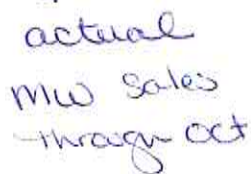 actual
MW Sales
through Oct